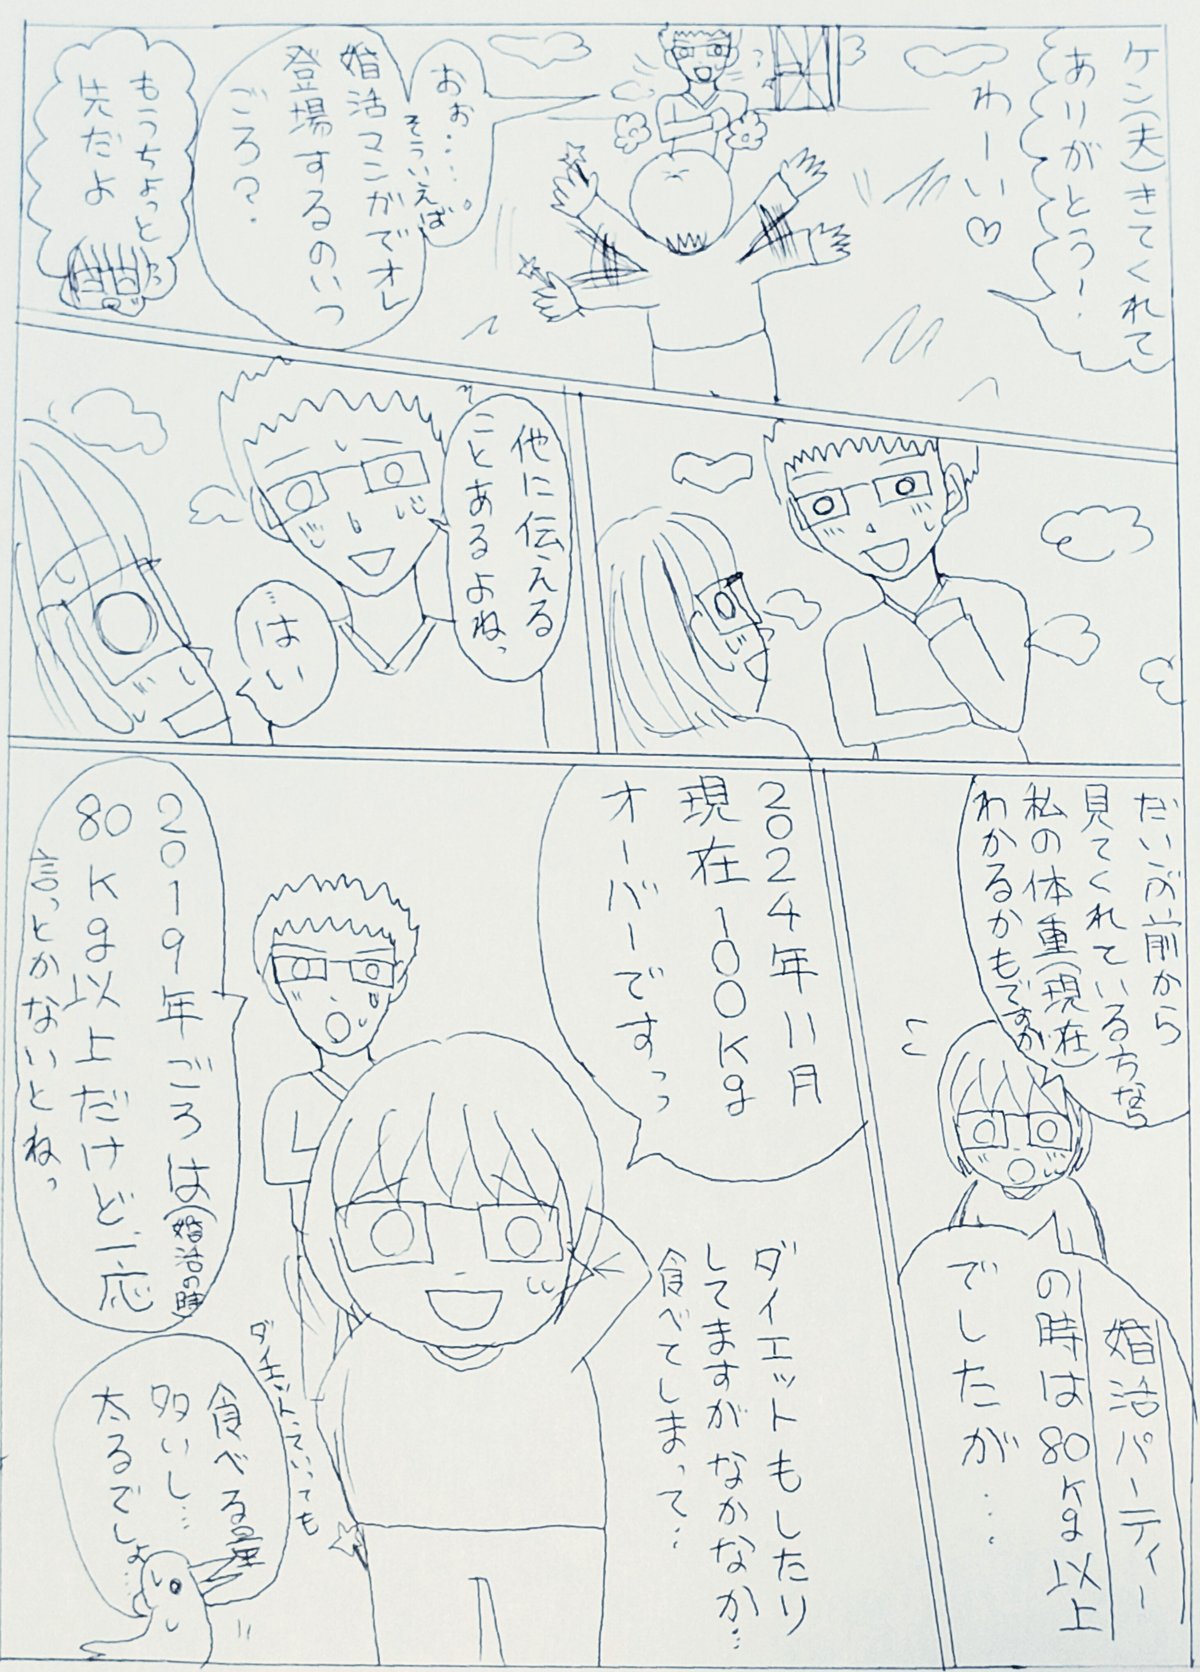 ケン(夫)きてくれて
ありがとう!
わーい♡
おぉ・・・。
そういえば
婚活マンガでオレ
登場するのいつ
ごろ?
もうちょっと
先だよ
他に伝える
ことあるよねっ
…はい
だいぶ前から
見てくれている方なら
私の体重(現在)
わかるかもですが
婚活パーティー
の時は80kg以上
でしたが…
2024年11月
現在100kg
オーバーですっっ
ダイエットもしたり
してますがなかなか…
食べてしまって…
2019年ごろは(婚活の時)
80kg以上だけど一応
言っとかないとねっ
ダイエットっていっても
食べる量
多いし…
太るでしょ…